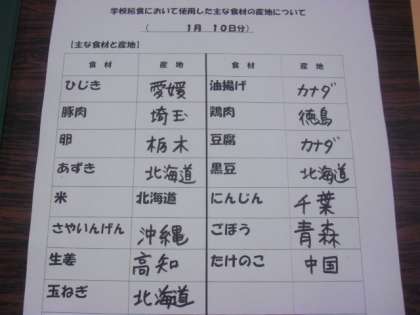 学校給食において使用した主な食材の産地について
(1月 10日分)
[主な食材と産地]
食材 産地 食材 産地
ひじき 愛媛 油揚げ カナダ
豚肉 埼玉 鶏肉 徳島
卵 栃木 豆腐 カナダ
あずき 北海道 黒豆 北海道
米 北海道 にんじん 千葉
さやいんげん 沖縄 ごぼう 青森
生姜 高知 たけのこ 中国
玉ねぎ 北海道